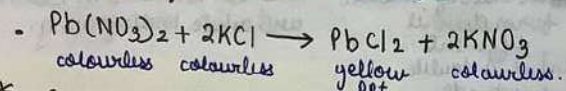 • Pb(NO₃)₂ + 2KCl ⟶ PbCl₂ + 2KNO₃
colourless colourless yellow colourless.
ppt